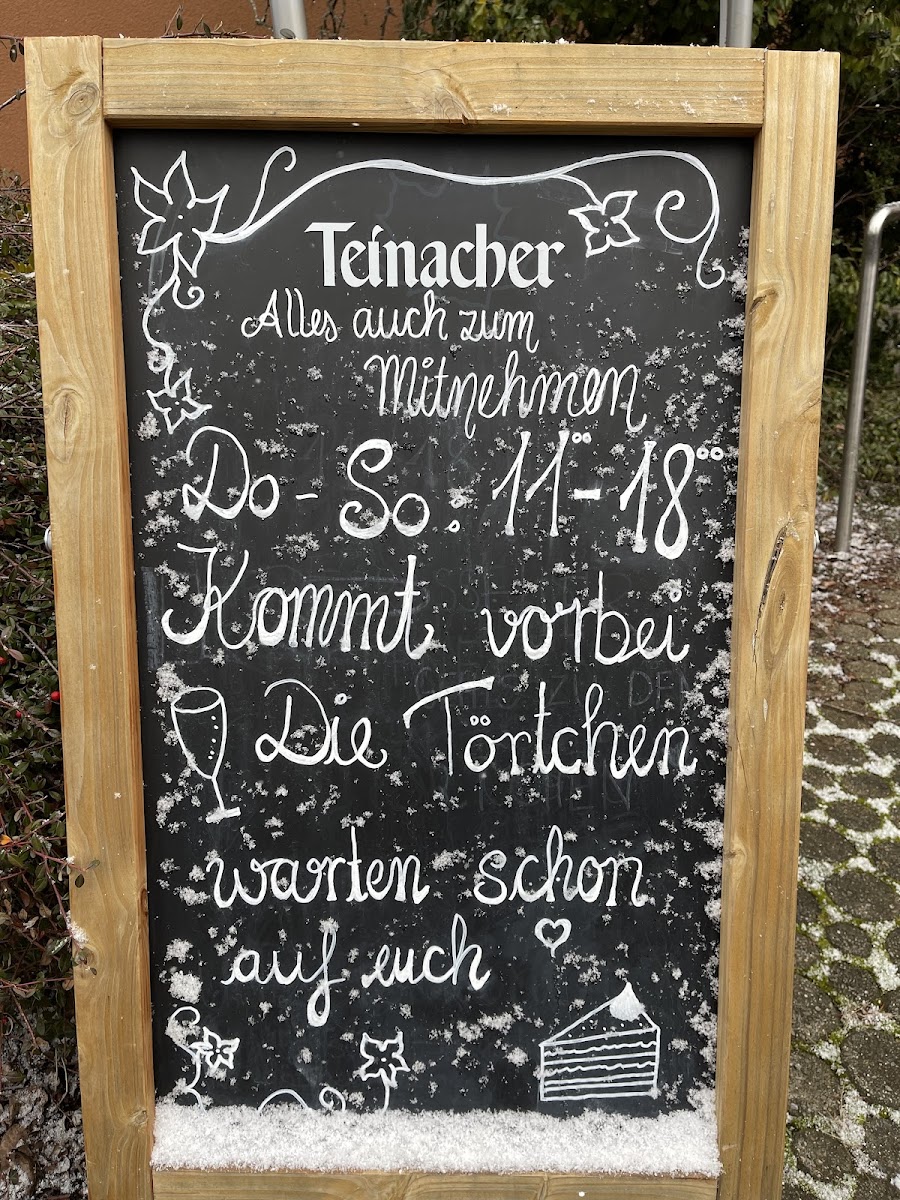 Teinacher
Alles auch zum
Mitnehmen
Do - So: 11°° - 18°°
Kommt vorbei
Die Törtchen
warten schon
auf euch ♡